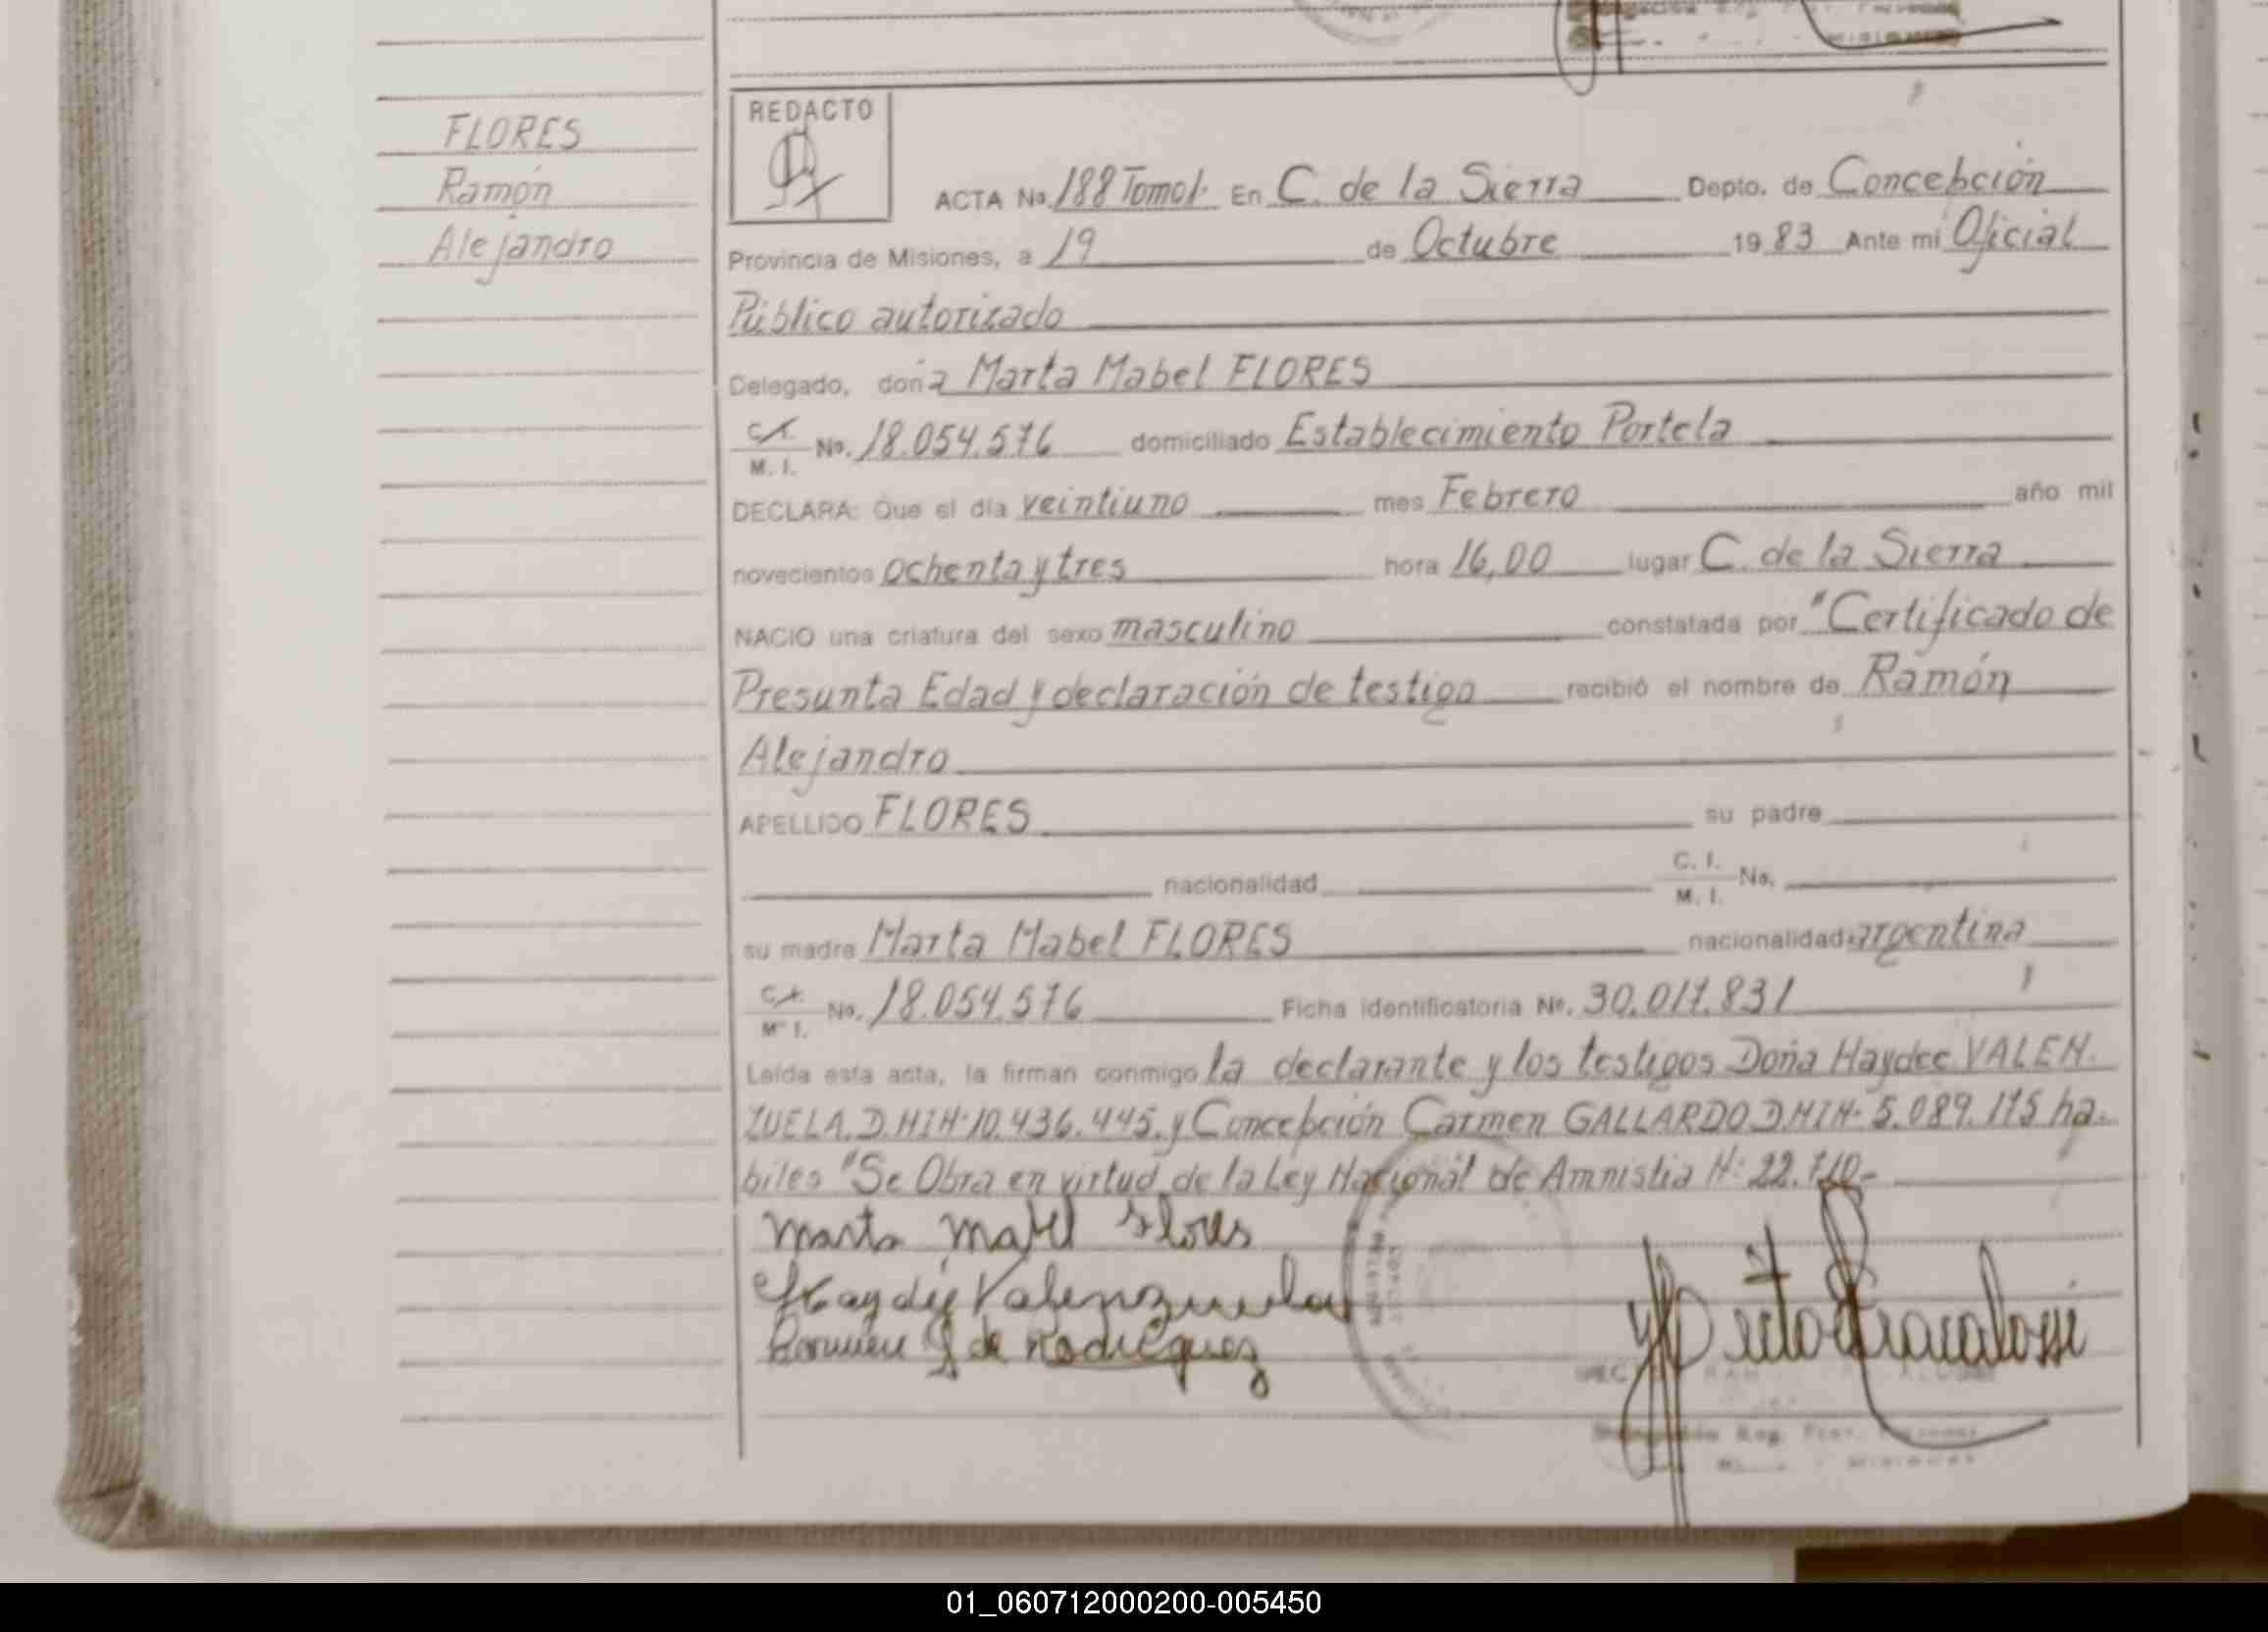 FLORES
Ramón
Alejandro
REDACTO
ACTA No. 188 Tomo1. En C. de la Sierra Depto. de Concepción
Provincia de Misiones, a 19 de Octubre 1983 Ante mi Oficial
Público autorizado
Delegado, doña Marta Mabel FLORES
C.I. M.I. No. 18.054.576 domiciliado Establecimiento Portela
DECLARA: Que el día veintiuno mes Febrero año mil
novecientos ochenta y tres hora 16,00 lugar C. de la Sierra
NACIO una criatura del sexo masculino constatada por "Certificado de
Presunta Edad y declaración de testigo recibió el nombre de Ramón
Alejandro
APELLIDO FLORES su padre
nacionalidad C.I. M.I. No.
su madre Marta Mabel FLORES nacionalidad argentina
C.I. M.I. No. 18.054.576 Ficha identificatoria No. 30.017.831
Leída esta acta, la firman conmigo la declarante y los testigos Doña Haydee VALEN
ZUELA. D.N.I.N. 10.436.445. y Concepción Carmen GALLARDO D.N.I.N. 5.089.175 ha.
biles "Se Obra en virtud de la Ley Nacional de Amnistia N: 22.710-
Marta Mabel Flores
Haydée Valenzuela
Carmen G de Rodriguez
01_060712000200-005450